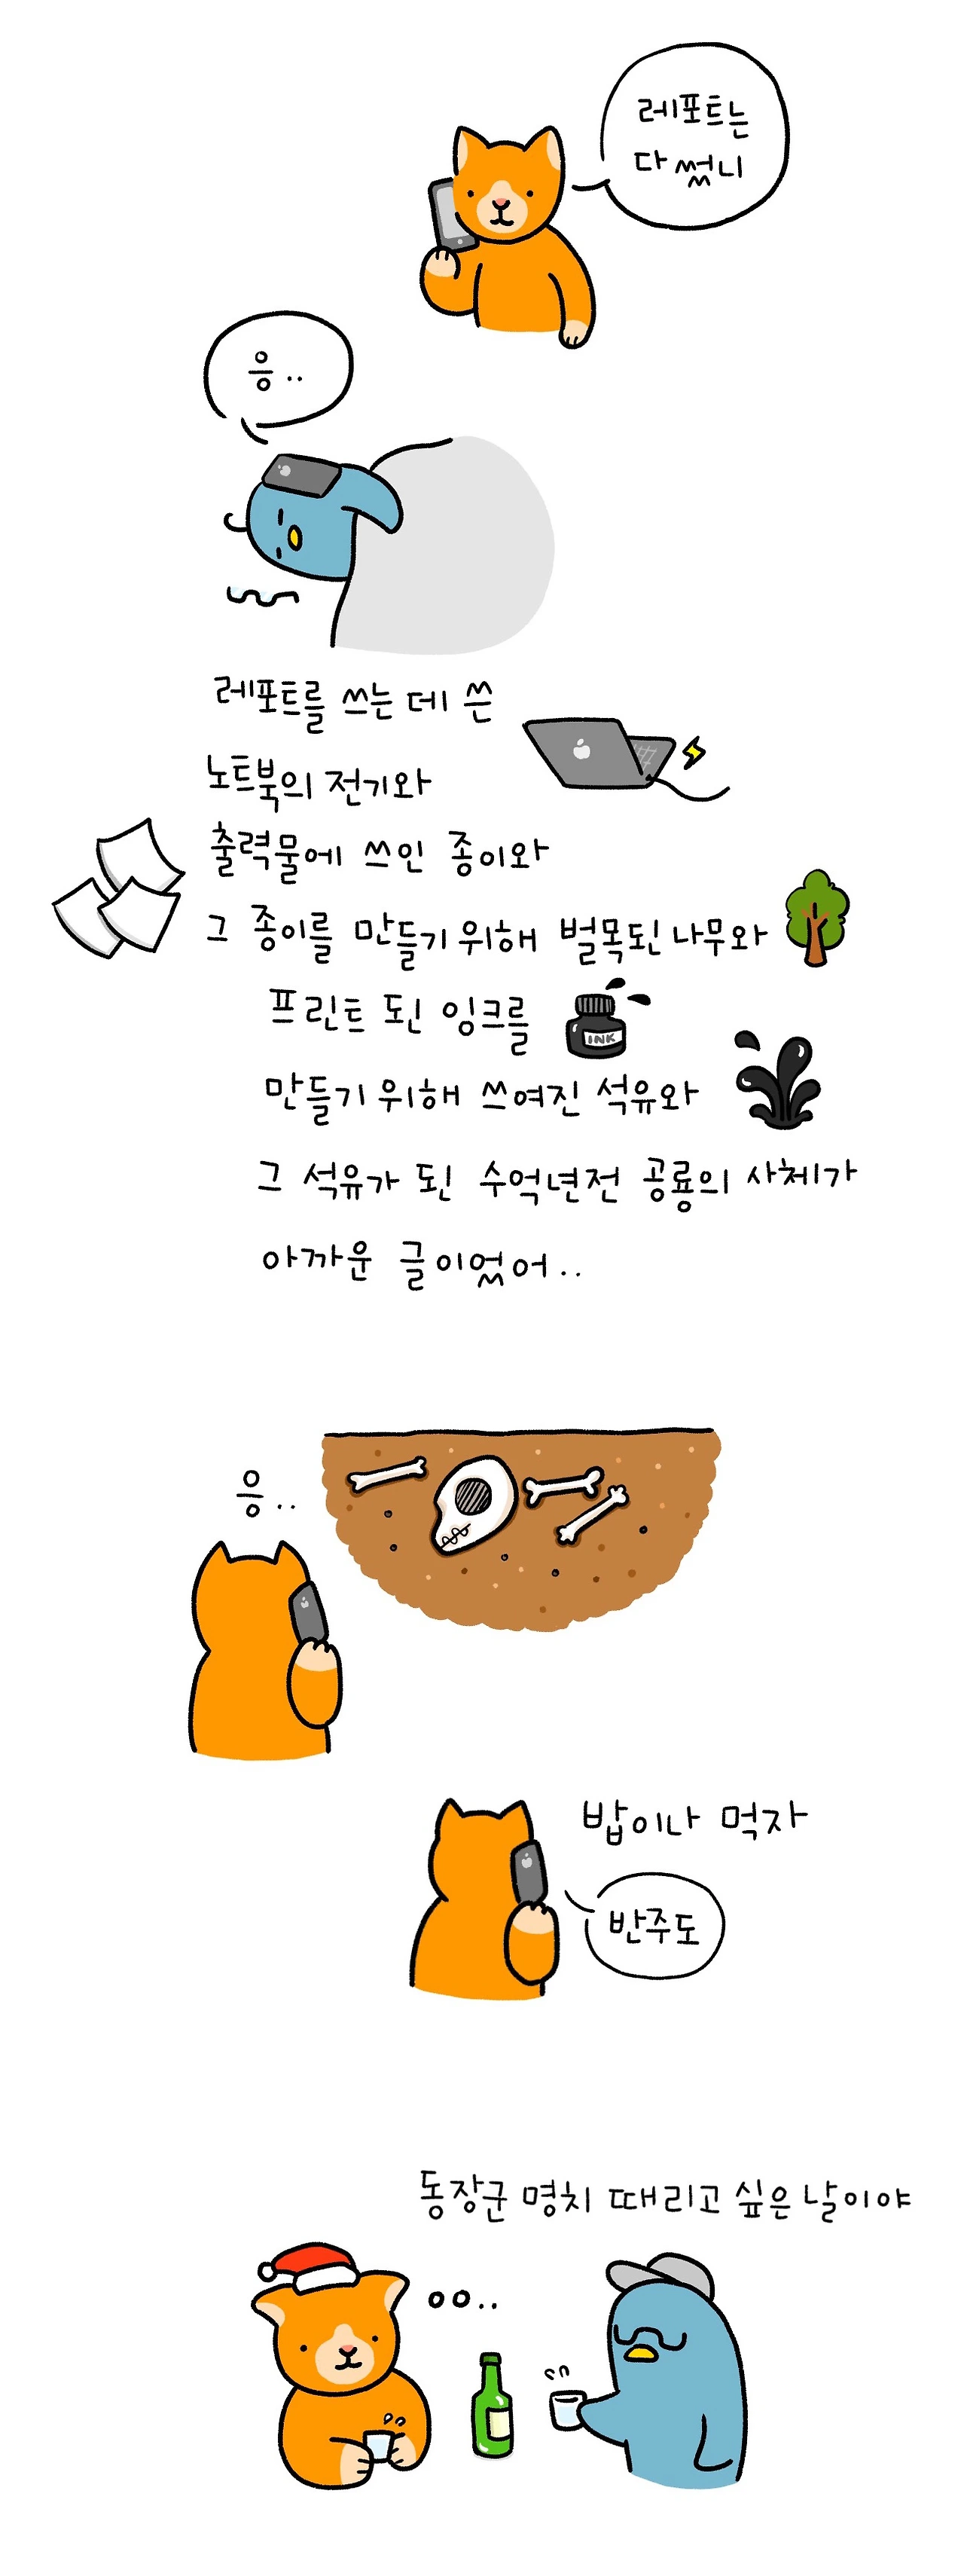 레포트는
다 썼니
응..
레포트를 쓰는 데 쓴
노트북의 전기와
출력물에 쓰인 종이와
그 종이를 만들기 위해 벌목된 나무와
프린트 된 잉크를
INK
만들기 위해 쓰여진 석유와
그 석유가 된 수억년전 공룡의 사체가
아까운 글이었어..
응..
밥이나 먹자
반주도
동장군 명치 때리고 싶은 날이야
ㅇㅇ..